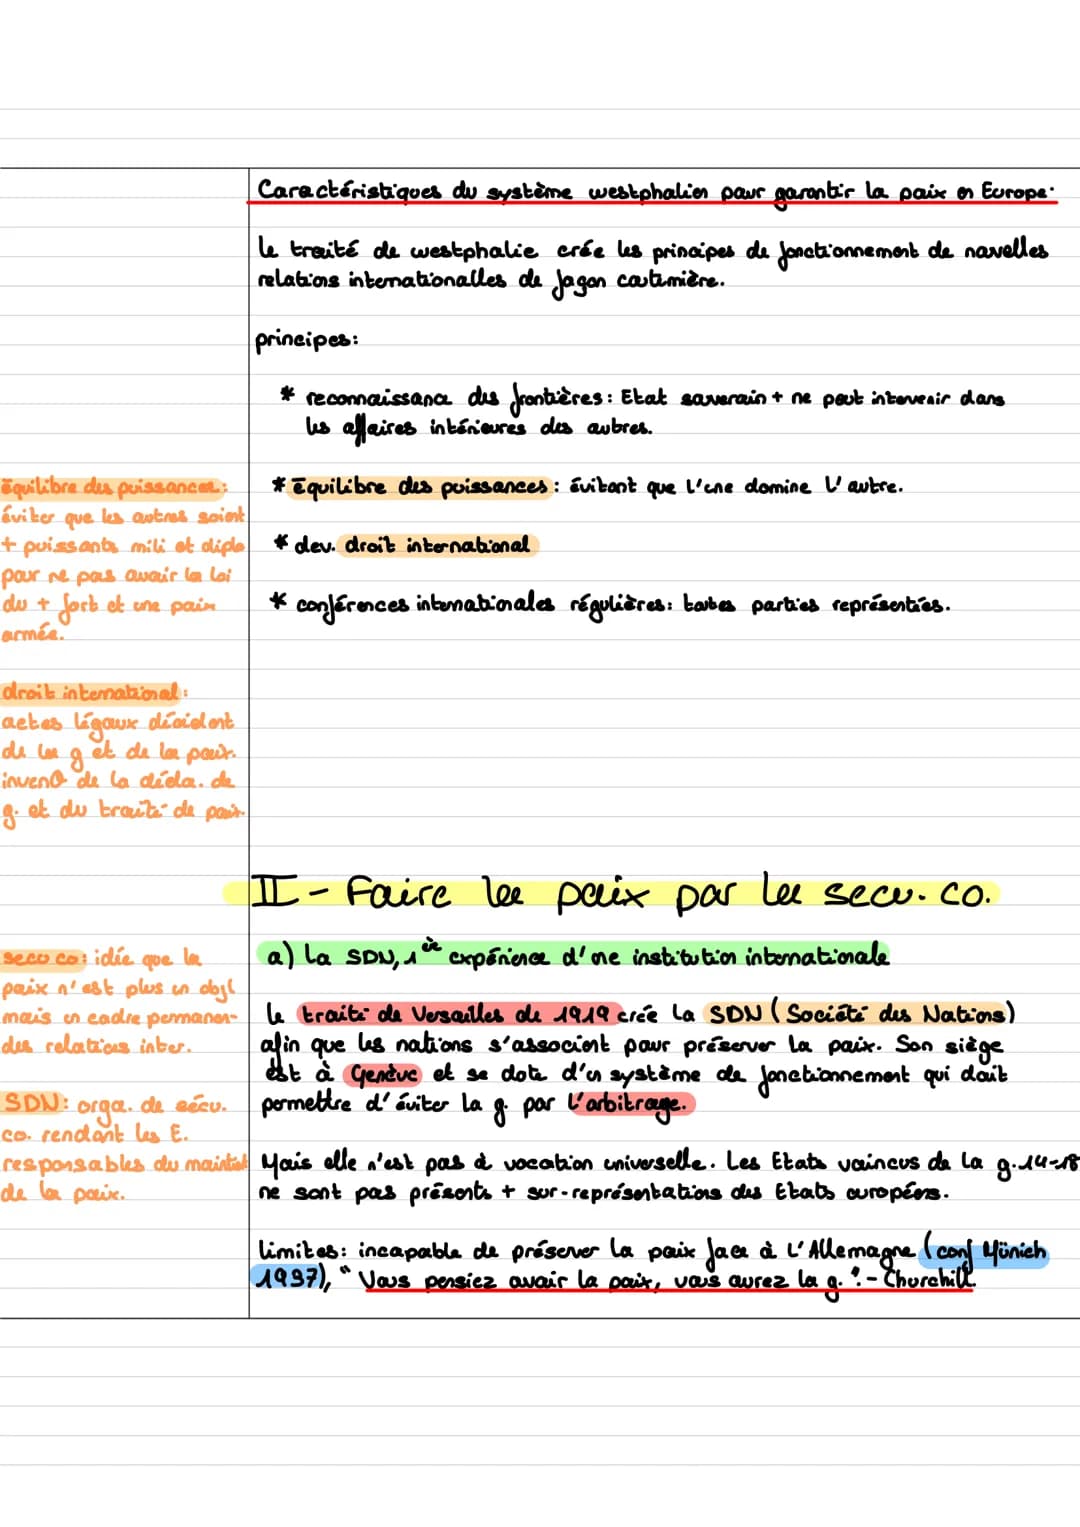 Caractéristiques du système westphalien pour garantir la paix en Europe.
Le traité de westphalie crée les principes de fonctionnement de nouvelles
relations internationalles de façon coutumière.
principes:
* reconnaissance des frontières: Etat souverain + ne peut intervenir dans
les affaires intérieures des autres.
équilibre des puissances:
éviter que les autres soient
+ puissants mili et diplo
pour ne pas avoir la loi
du + fort et une paix
armée.
* équilibre des puissances: évitant que l'une domine l'autre.
* dev. droit international
* conférences internationales régulières: toutes parties représentées.
droit international:
actes légaux décident
de la g et de la paix.
inven° de la décla. de
g. et du traité de paix.
II - Faire la paix par la secu. co.
a) La SDN, 1ère expérience d'une institution internationale
secu co: idée que la
paix n'est plus un objt
mais un cadre permanent
des relations inter.
SDN: orga. de sécu.
co. rendant les E.
responsables du maintient
de la paix.
Le traité de Versailles de 1919 crée la SDN (Société des Nations)
afin que les nations s'associent pour préserver la paix. Son siège
est à Genève et se dote d'un système de fonctionnement qui doit
permettre d'éviter la g. par l'arbitrage.
Mais elle n'est pas à vocation universelle. Les Etats vaincus de la g. 14-18
ne sont pas présents + sur-représentations des Etats européens.
limites: incapable de préserver la paix face à l'Allemagne (conf Münich
1937), "Vous pensiez avoir la paix, vous aurez la g." - Churchill.